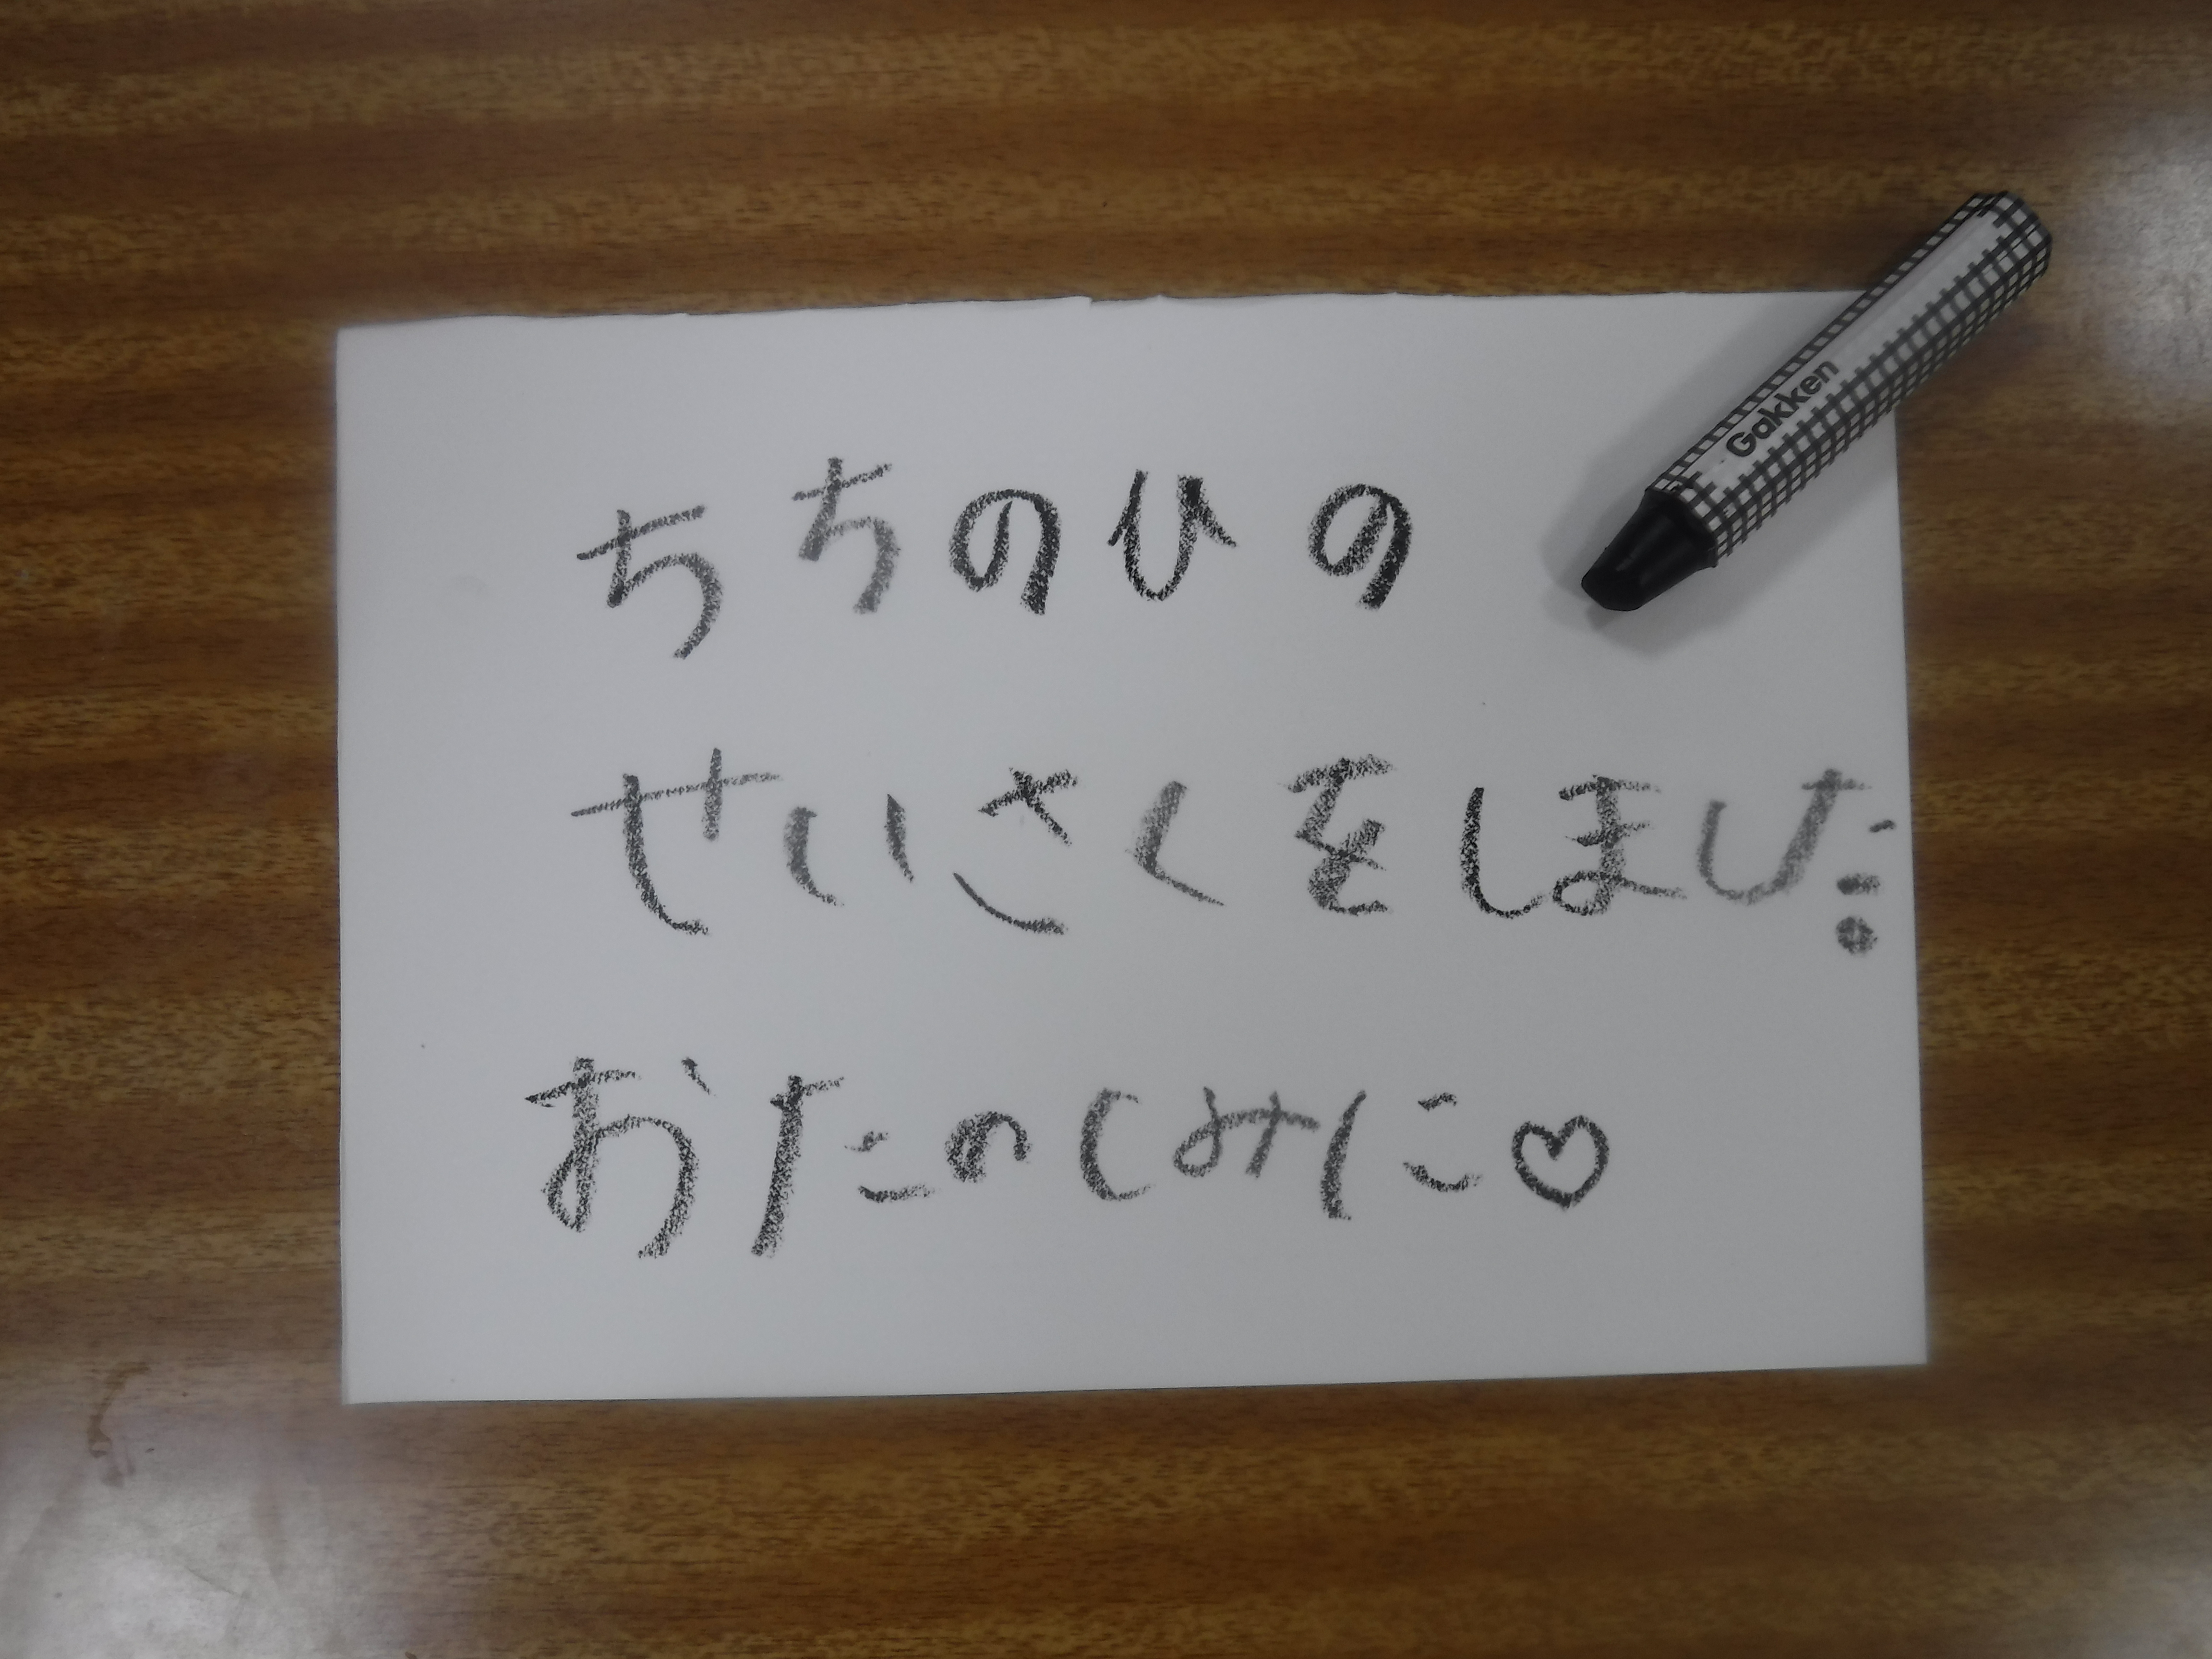 ちちのひの
せいさくをしました。
おたのしみに♡
Gakken